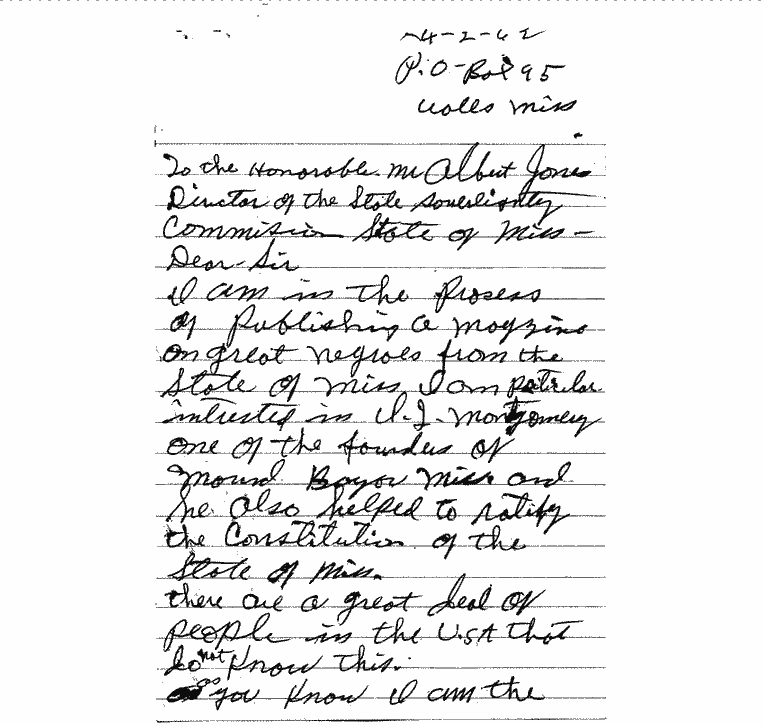 4-2-62
P.O-Box 95
Walls Miss
To the Honorable. Mr Albert Jones
Director of the State Soverlionty
Commision State of Miss-
Dear-Sir
I am in the Prosess
of Publishing a Magzine
on great negroes from the
State of Miss I am paticular
intrested in I.T. Montgomery
one of the founders of
Mound Bayou Miss and
he also helped to ratify
the Constitution of the
State of Miss.
there are a great deal of
people in the U.S.A that
do not Know this.
as you Know I am the